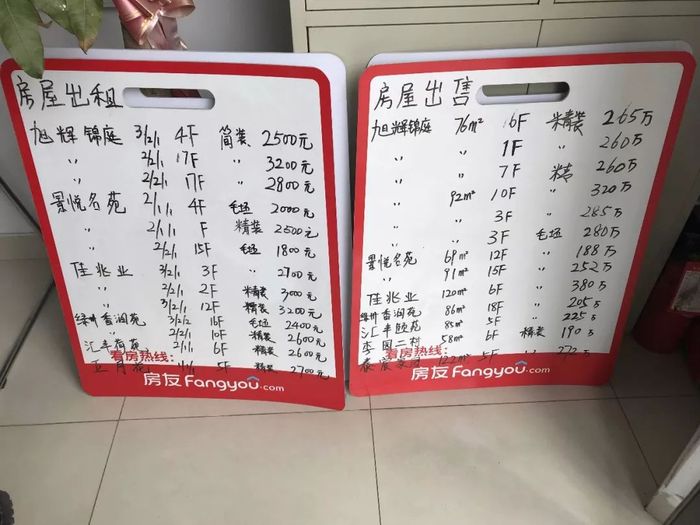 房屋出租
旭辉锦庭 3/2/1 4F 简装 2500元
〃 2/2/1 17F 〃 3200元
〃 2/2/1 17F 〃 2800元
景悦名苑 2/1/1 4F 毛坯 2000元
〃 2/1/1 F 精装 2500元
〃 2/2/1 15F 毛坯 1800元
佳兆业 3/2/1 3F 〃 2700元
〃 2/2/1 2F 精装 3000元
〃 3/2/1 12F 精装 3200元
绿地香润苑 3/2/2 16F 毛坯 2400元
〃 2/2/1 10F 精装 2600元
汇丰 苑 2/2/1 6F 精装 2600元
看房热线:
月 1/1 5F 精装 2700元
房友 Fangyou.com
房屋出售
旭辉锦庭 76m² 16F 精装 265万
〃 1F 260万
〃 7F 精 260万
〃 92m² 10F 〃 320万
〃 3F 285万
〃 3F 毛坯 280万
景悦名苑 69m² 12F 〃 188万
〃 91m² 15F 〃 252万
佳兆业 120m² 6F 〃 380万
绿地香润苑 86m² 18F 〃 205万
汇丰颐苑 85m² 5F 〃 225万
李园二村 58m² 6F 精装 190万
看房热线:
122m² 5F 〃 272万
房友 Fangyou.com